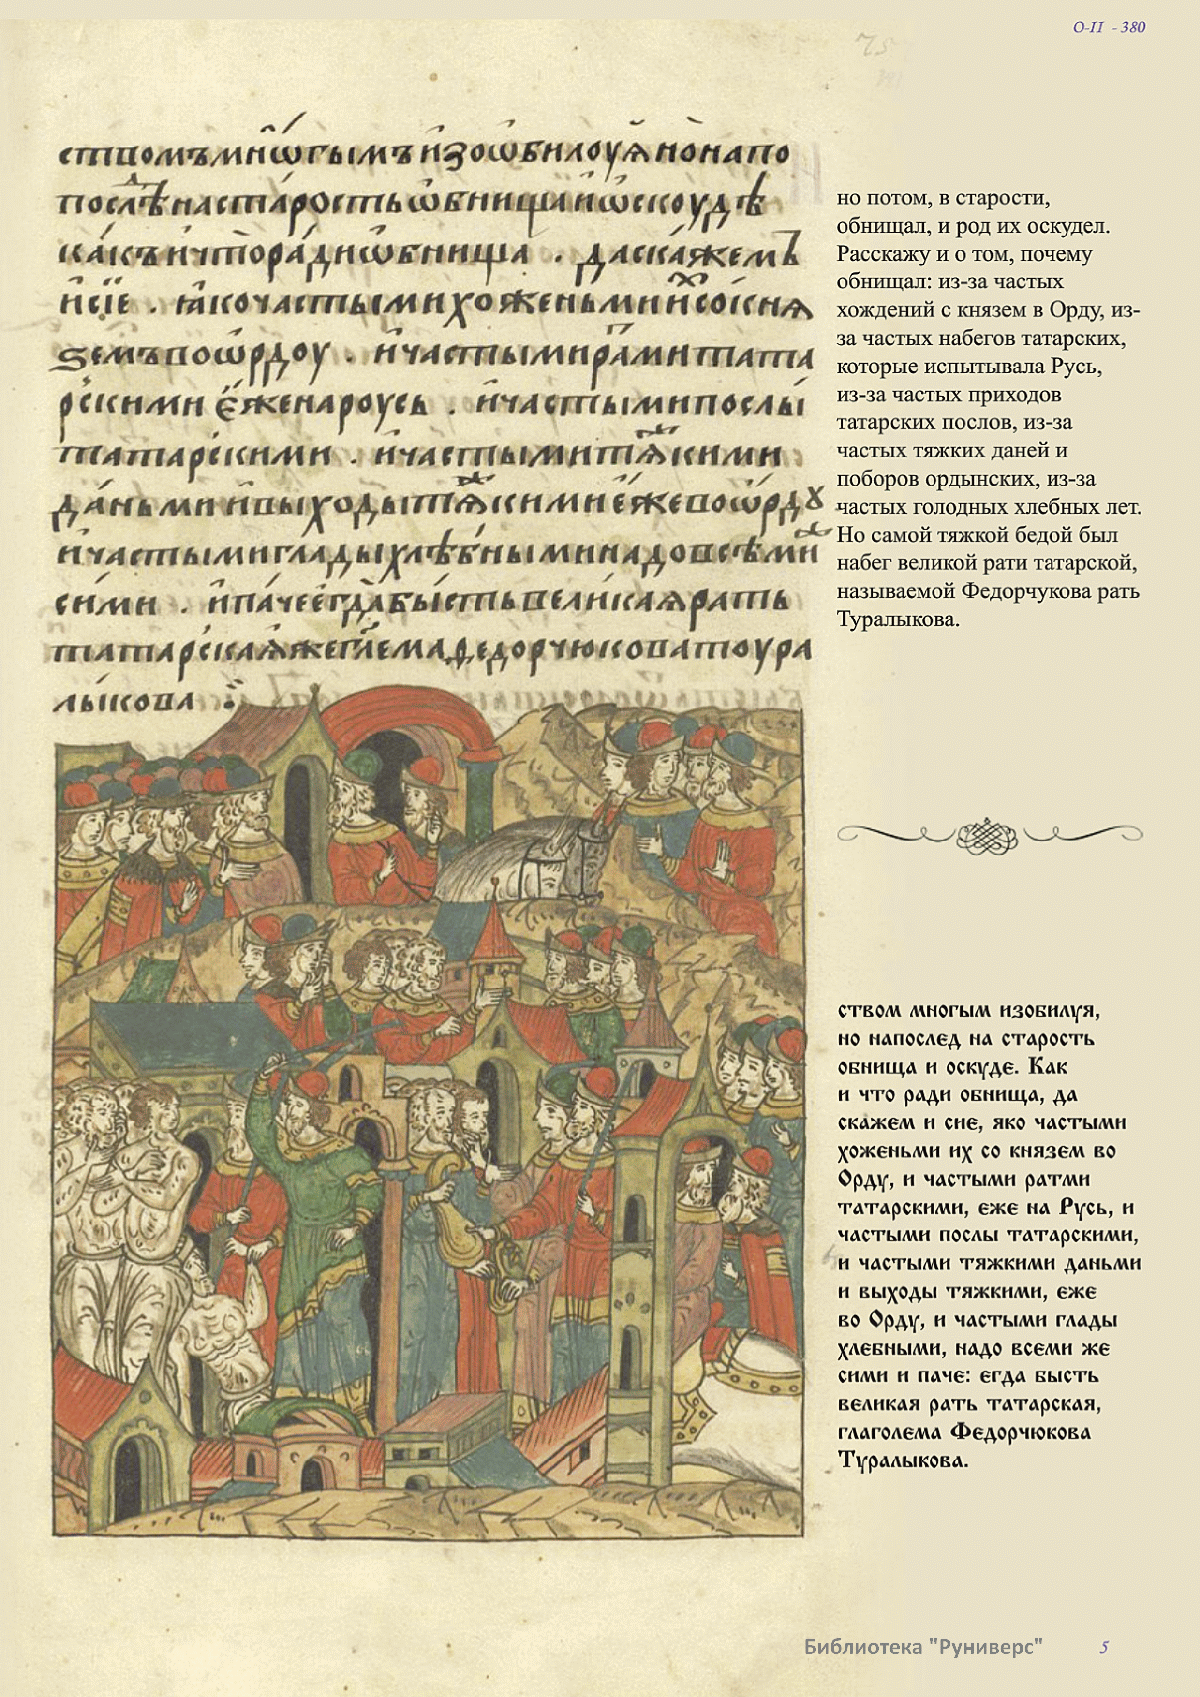 О-II - 380
75
ствомъмн҃ѡгымъизоѡбилоуѧнонапо
послѣ́настáростьѡбнищаиѡскоудѣ
кáкъичторáдиѡбнища . даскáжемъ
исїе . ꙗкочастымихоженьмиихсокнѧ
ѕемъвоѡрдоу . ичастымирáтмитата
рскими ёженароусь . ичастымипослы́
татáрскими . ичастымитѧжкими
дáньмиивыходытѧжскимиёжевоѡрдꙋ
ичастымиглáдыхлѣбнымина́довсѣмиже
сими . ипáчеегдабы́стьвеликаѧрать
татáрскаѧжеглемаѧѳедорчюковатоура
лы́кова
но потом, в старости,
обнищал, и род их оскудел.
Расскажу и о том, почему
обнищал: из-за частых
хождений с князем в Орду, из-
за частых набегов татарских,
которые испытывала Русь,
из-за частых приходов
татарских послов, из-за
частых тяжких даней и
поборов ордынских, из-за
частых голодных хлебных лет.
Но самой тяжкой бедой был
набег великой рати татарской,
называемой Федорчукова рать
Туралыкова.
ством многым изобилуя,
но напослед на старость
обнища и оскуде. Как
и что ради обнища, да
скажем и сие, яко частыми
хоженьми их со князем во
Орду, и частыми ратми
татарскими, еже на Русь, и
частыми послы татарскими,
и частыми тяжкими даньми
и выходы тяжкими, еже
во Орду, и частыми глады
хлебными, надо всеми же
сими и паче: егда бысть
великая рать татарская,
глаголема Федорчюкова
Туралыкова.
Библиотека "Руниверс"
5